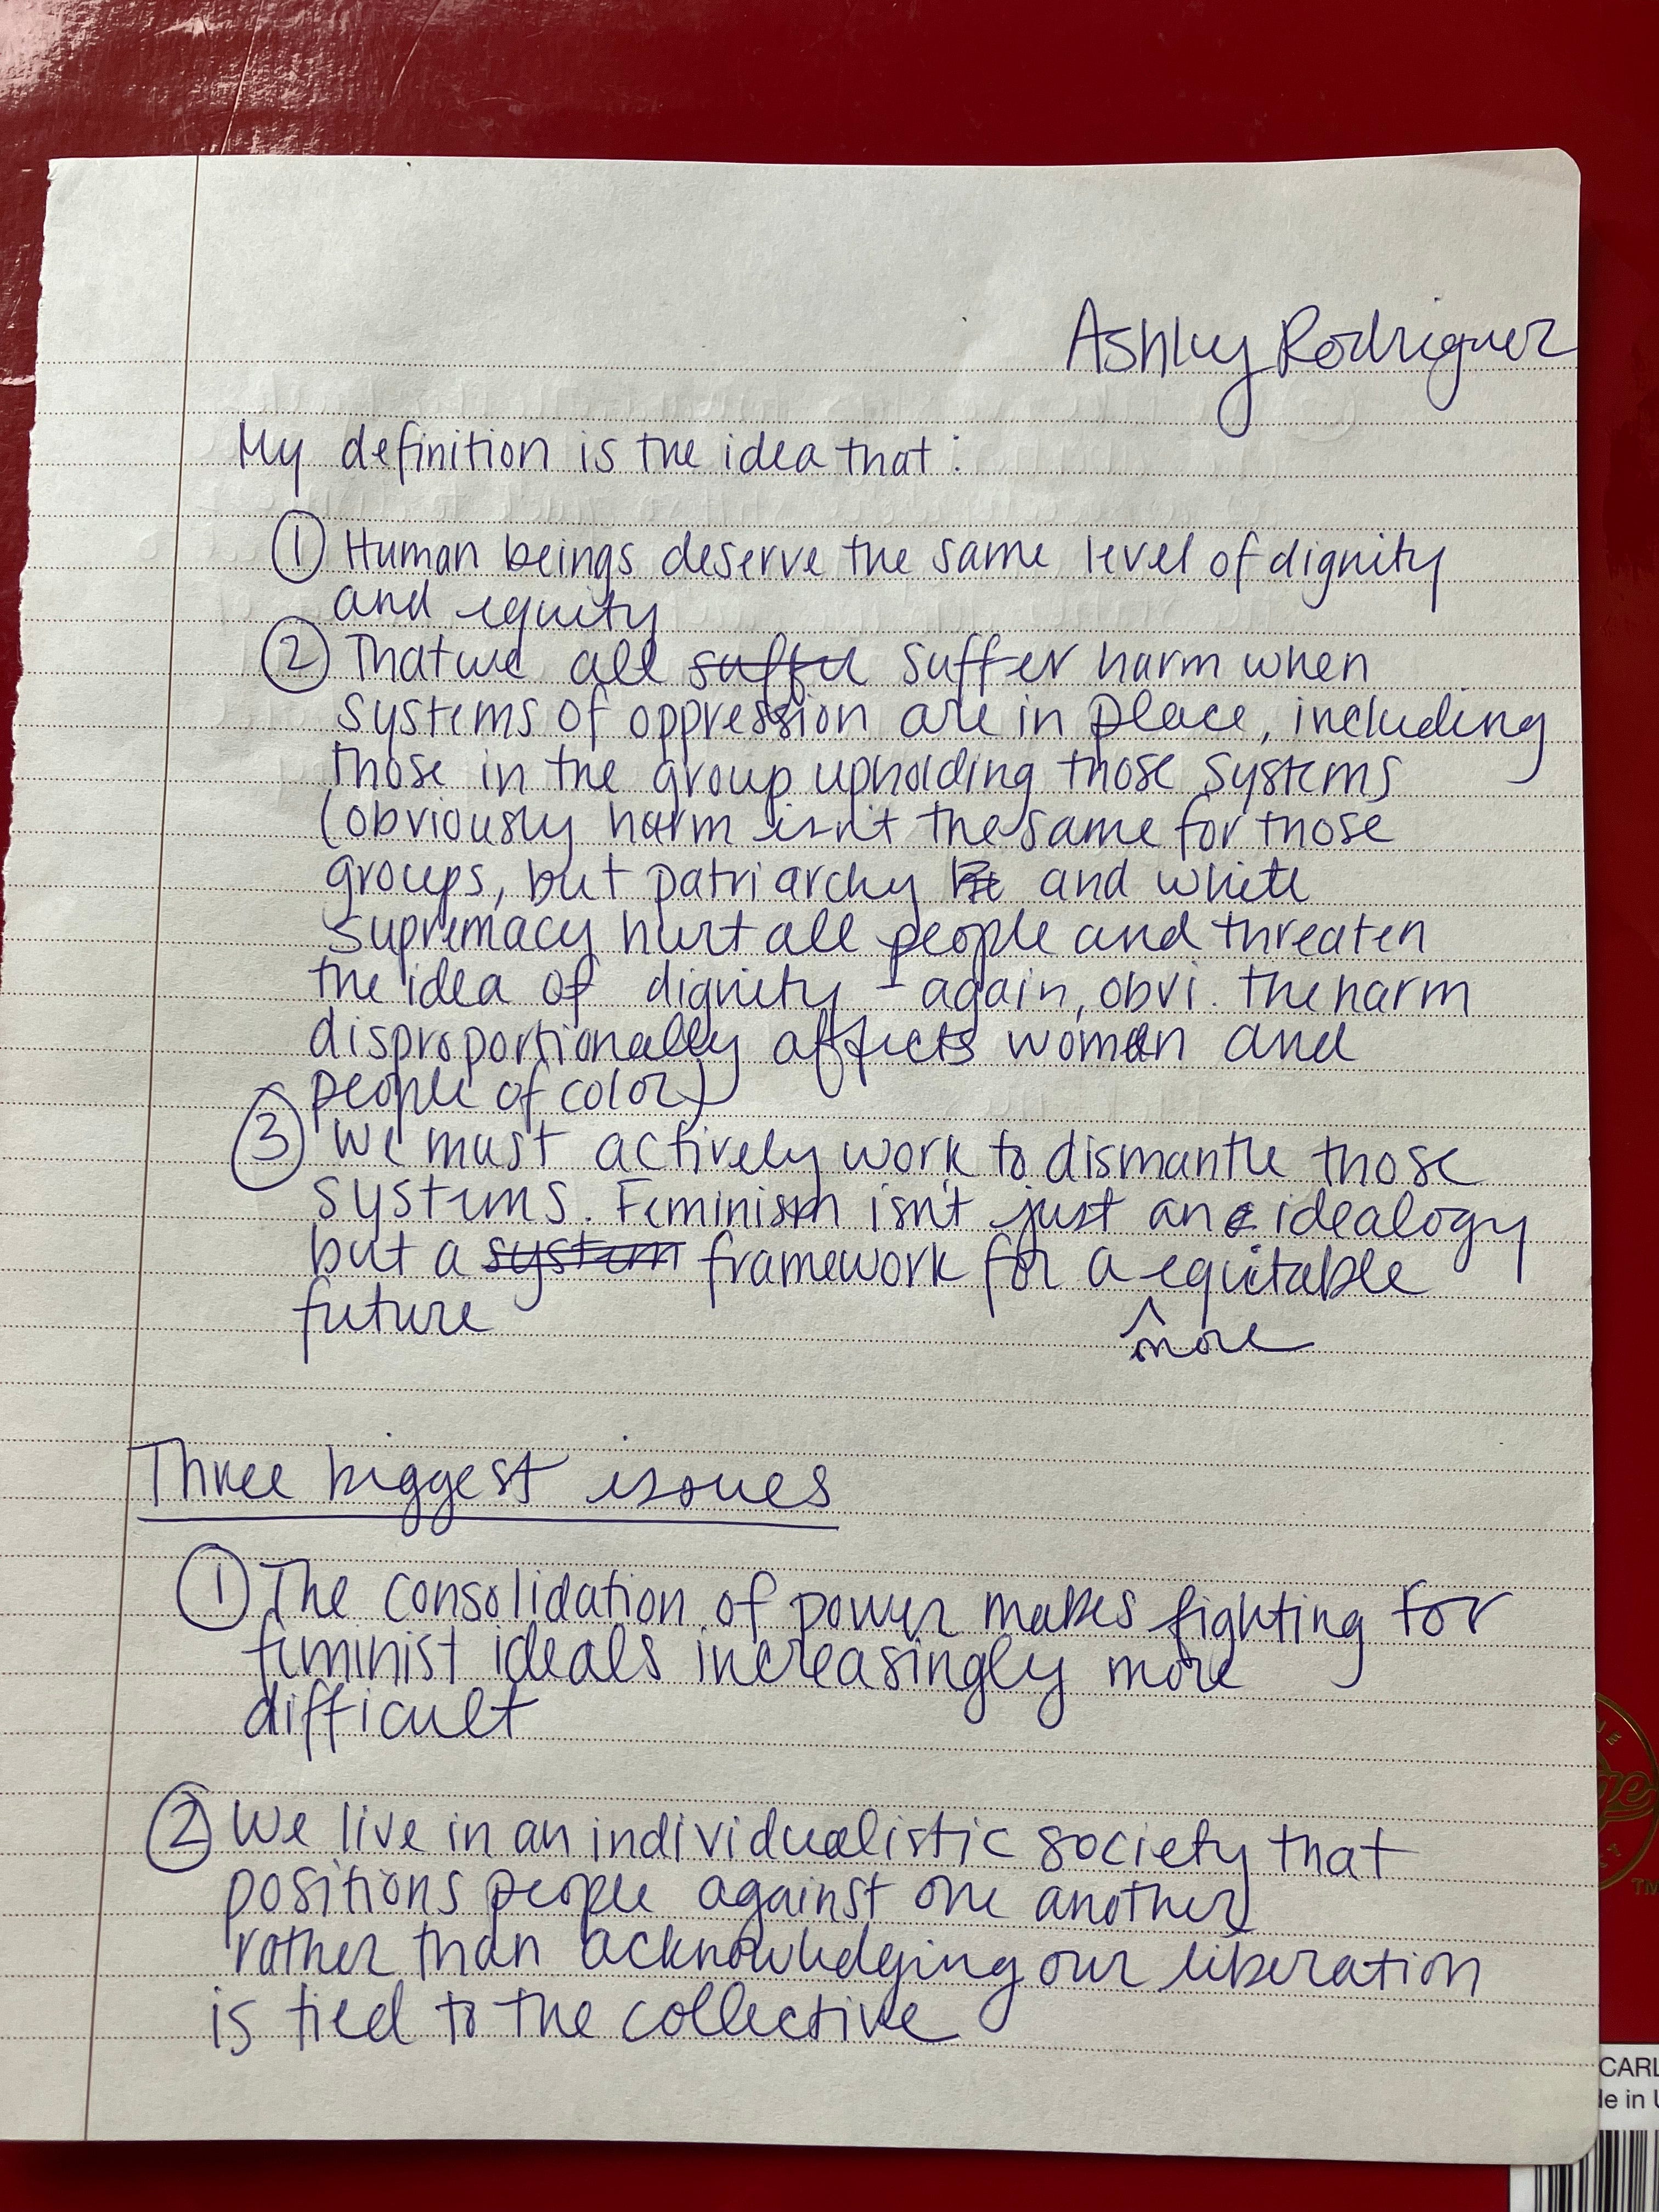 Ashley Rodriguez
My definition is the idea that:
① Human beings deserve the same level of dignity
and equity
② That we all suffer harm when
systems of oppression are in place, including
those in the group upholding those systems
(obviously harm isn't the same for those
groups, but patriarchy and white
supremacy hurt all people and threaten
the idea of dignity - again, obvi. the harm
disproportionally affects women and
people of color)
③ We must actively work to dismantle those
systems. Feminism isn't just an idealogy
but a system framework for a more equitable
future
Three biggest issues
① The consolidation of power makes fighting for
feminist ideals increasingly more
difficult
② We live in an individualistic society that
positions people against one another
rather than acknowledging our liberation
is tied to the collective
TM
CARL
le in U